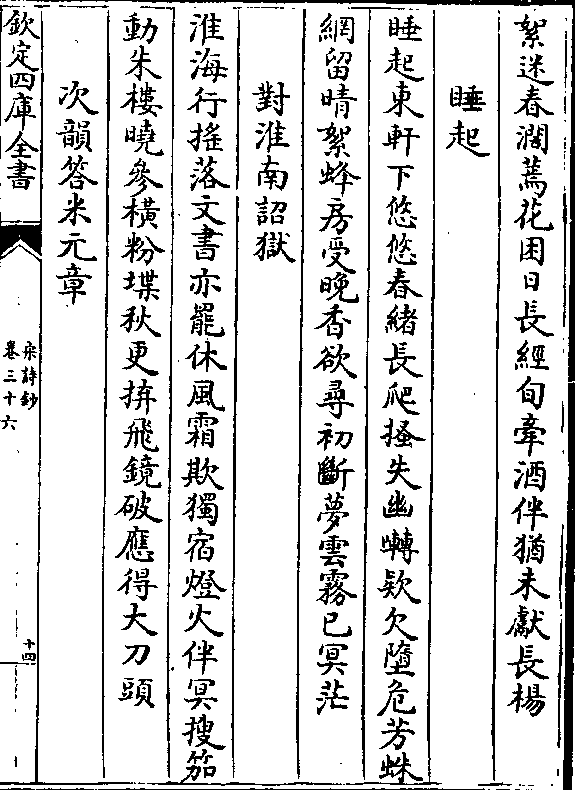 絮迷春濶蔫花困日長經旬牽酒伴猶未獻長楊
睡起
睡起東軒下悠悠春緒長爬搔失幽囀欵欠墮危芳蛛
網留晴絮蜂房受晚香欲尋初斷夢雲霧已冥茫
對淮南詔獄
淮海行搖落文書亦罷休風霜欺獨宿燈火伴冥搜笳
動朱樓曉參橫粉堞秋更拚飛鏡破應得大刀頭
次韻答米元章
欽定四庫全書
宋詩鈔
卷三十六
十四